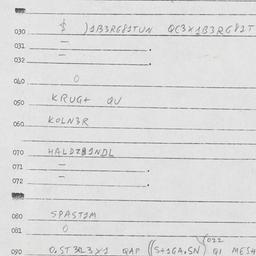 030 $ )1B3RG81TUN QC3X1B3RG81T
031 — .
032 — .
040 0
050 KRUG+ QU
060 KOLN3R
070 HALDZ81NDL
071 — .
072 — .
080 SPAST1M
081 0
022
090 0.ST3RL3X1 QAP ((S+1GA.SN) QI MES4